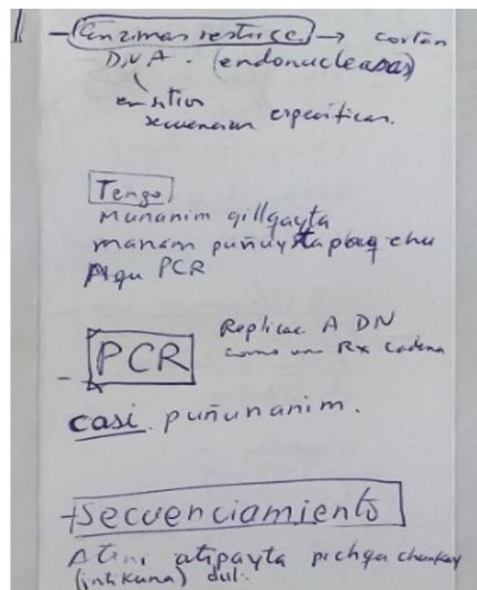 - Enzimas restricc. → cortan
DNA. (endonucleasas)
en sitios
secuencias específicas.
Tengo
Munanim qillqayta
manam puñuyta chu
PCR
Replicac A DN
como una Rx cadena
- PCR
casi puñunanim.
+ Secuenciamiento
Atini atipayta pichqa chunkay
(intikuna)